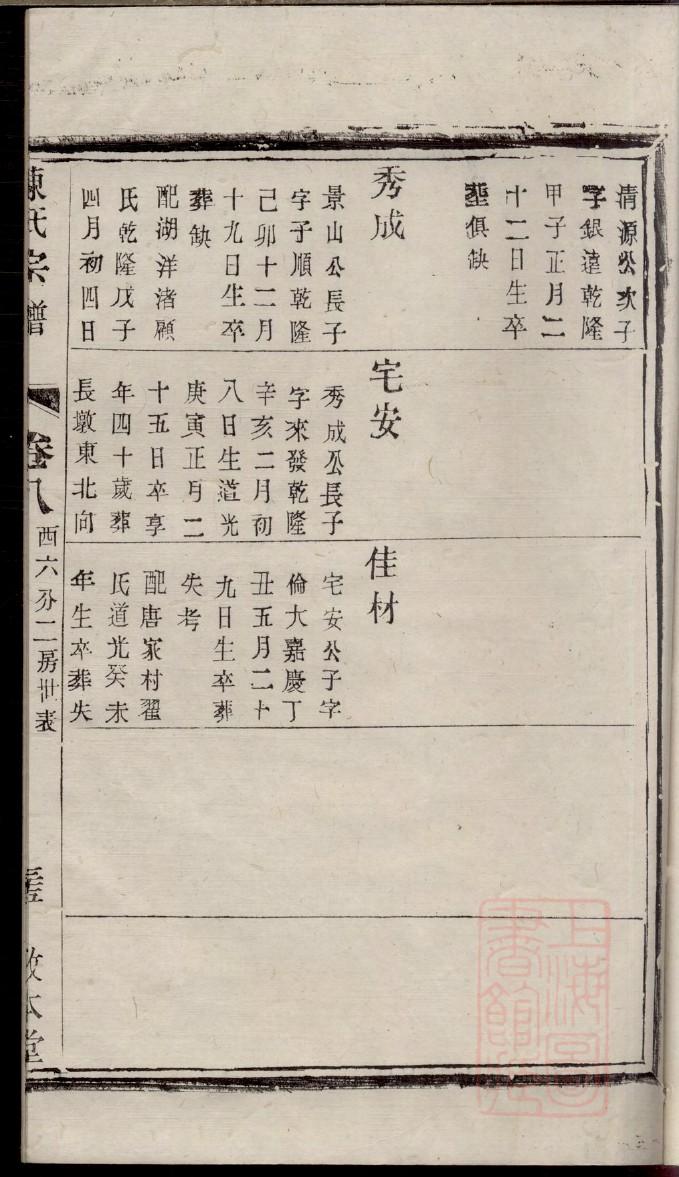 清源公次子
字銀遠乾隆
甲子正月二
十二日生卒
塟俱缺
秀成
景山公長子
字子順乾隆
己卯十二月
十九日生卒
葬缺
配湖洋渚顧
氏乾隆戊子
四月初四日
宅安
秀成公長子
字來發乾隆
辛亥二月初
八日生道光
庚寅正月二
十五日卒享
年四十歲葬
長墩東北向
佳材
宅安公子字
倫大嘉慶丁
丑五月二十
九日生卒葬
失考
配唐家村翟
氏道光癸未
年生卒葬失
陳氏宗譜
卷八
西六分二房世表
本堂
上海圖
書館藏